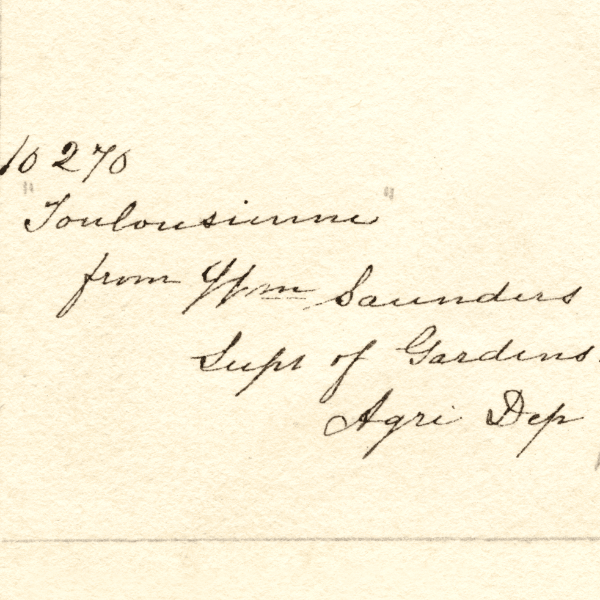 10270
"Toulousienne"
from Wm Saunders
Supt of Gardens.
Agri Dep